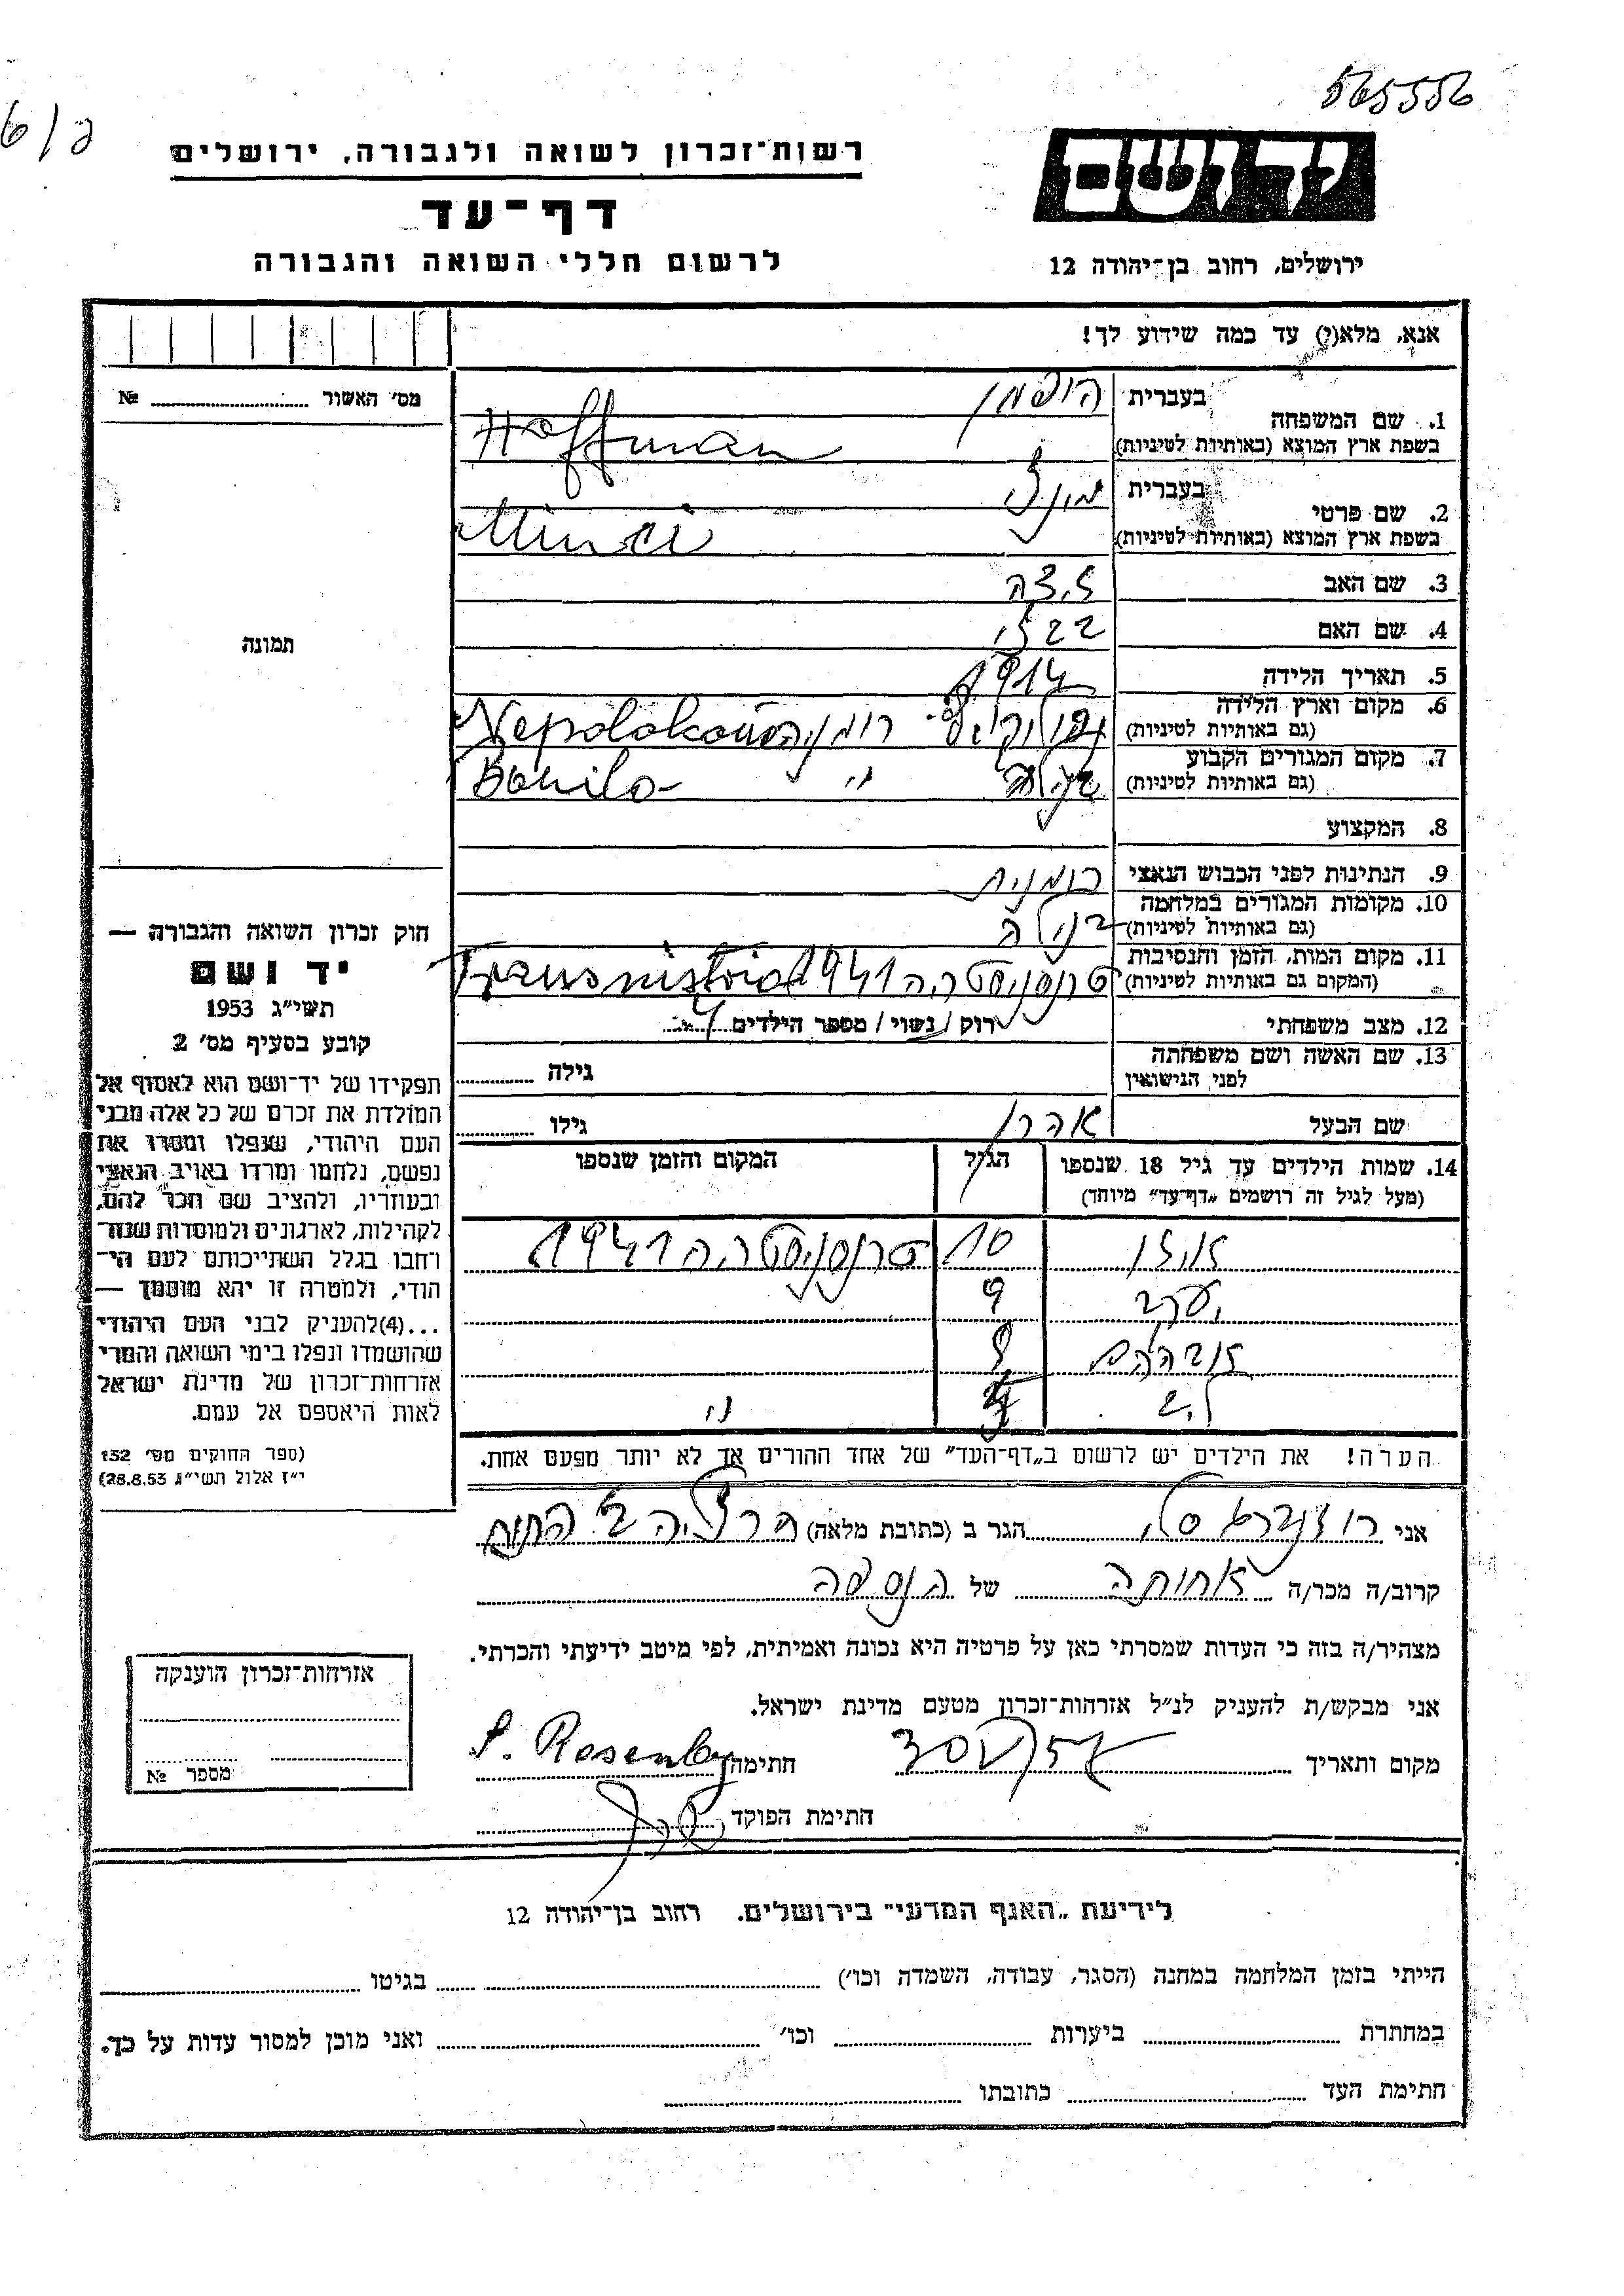 565556
רשות־זכרון לשואה ולגבורה, ירושלים
יד ושם
דף־עד
לרשום חללי השואה והגבורה
ירושלים, רחוב בן־יהודה 12
אנא, מלא(י) עד כמה שידוע לך!
מס' האשור № 
1. שם המשפחה בעברית הופמן
בשפת ארץ המוצא (באותיות לטיניות) Hoffman
2. שם פרטי בעברית
בשפת ארץ המוצא (באותיות לטיניות) Minci
תמונה
3. שם האב
4. שם האם
5. תאריך הלידה 1914
6. מקום וארץ הלידה
(גם באותיות לטיניות) רומניה
7. מקום המגורים הקבוע
(גם באותיות לטיניות) " Banila
8. המקצוע
9. הנתינות לפני הכבוש הנאצי רומנית
10. מקומות המגורים במלחמה
(גם באותיות לטיניות) בנילה
11. מקום המות, הזמן והנסיבות
(המקום גם באותיות לטיניות) טרנסניסטריה 1941 Transnistria
12. מצב משפחתי רוק/נשוי/מספר הילדים 4
13. שם האשה ושם משפחתה
לפני הנישואין גילה
שם הבעל אהרן גילו
חוק זכרון השואה והגבורה —
יד ושם
תשי״ג 1953
קובע בסעיף מס' 2
תפקידו של יד־ושם הוא לאסוף אל
המולדת את זכרם של כל אלה מבני
העם היהודי, שנפלו ומסרו את
נפשם, נלחמו ומרדו באויב הנאצי
ובעוזריו, ולהציב שם וזכר להם,
לקהילות, לארגונים ולמוסדות שנח־
רחבו בגלל השתייכותם לעם הי־
הודי, ולמטרה זו יהא מוסמך —
...(4) להעניק לבני העם היהודי
שהושמדו ונפלו בימי השואה והמרי
אזרחות־זכרון של מדינת ישראל
לאות היאספם אל עמם.
(ספר החוקים מס' 132
י״ז אלול תשי״ג 28.8.53)
14. שמות הילדים עד גיל 18 שנספו הגיל המקום והזמן שנספו
(מעל לגיל זה רושמים „דף־עד״ מיוחד)
10 טרנסניסטריה 1941
יעקב 9
אברהם 8
"
הערה! את הילדים יש לרשום ב„דף־העד״ של אחד ההורים אך לא יותר מפעם אחת.
אני רוזנברג סלי הגר ב (כתובת מלאה) הרצליה ב'
קרוב/ה מכר/ה אחותה של הנספה
מצהיר/ה בזה כי העדות שמסרתי כאן על פרטיה היא נכונה ואמיתית, לפי מיטב ידיעתי והכרתי.
אני מבקש/ת להעניק לנ״ל אזרחות־זכרון מטעם מדינת ישראל.
מקום ותאריך חתימה S. Rosenberg
חתימת הפוקד
אזרחות־זכרון הוענקה
מספר №
לידיעת „האגף המדעי״ בירושלים, רחוב בן־יהודה 12
הייתי בזמן המלחמה במחנה (הסגר, עבודה, השמדה וכו') בגיטו
במחתרת ביערות וכו' ואני מוכן למסור עדות על כך.
חתימת העד כתובתו